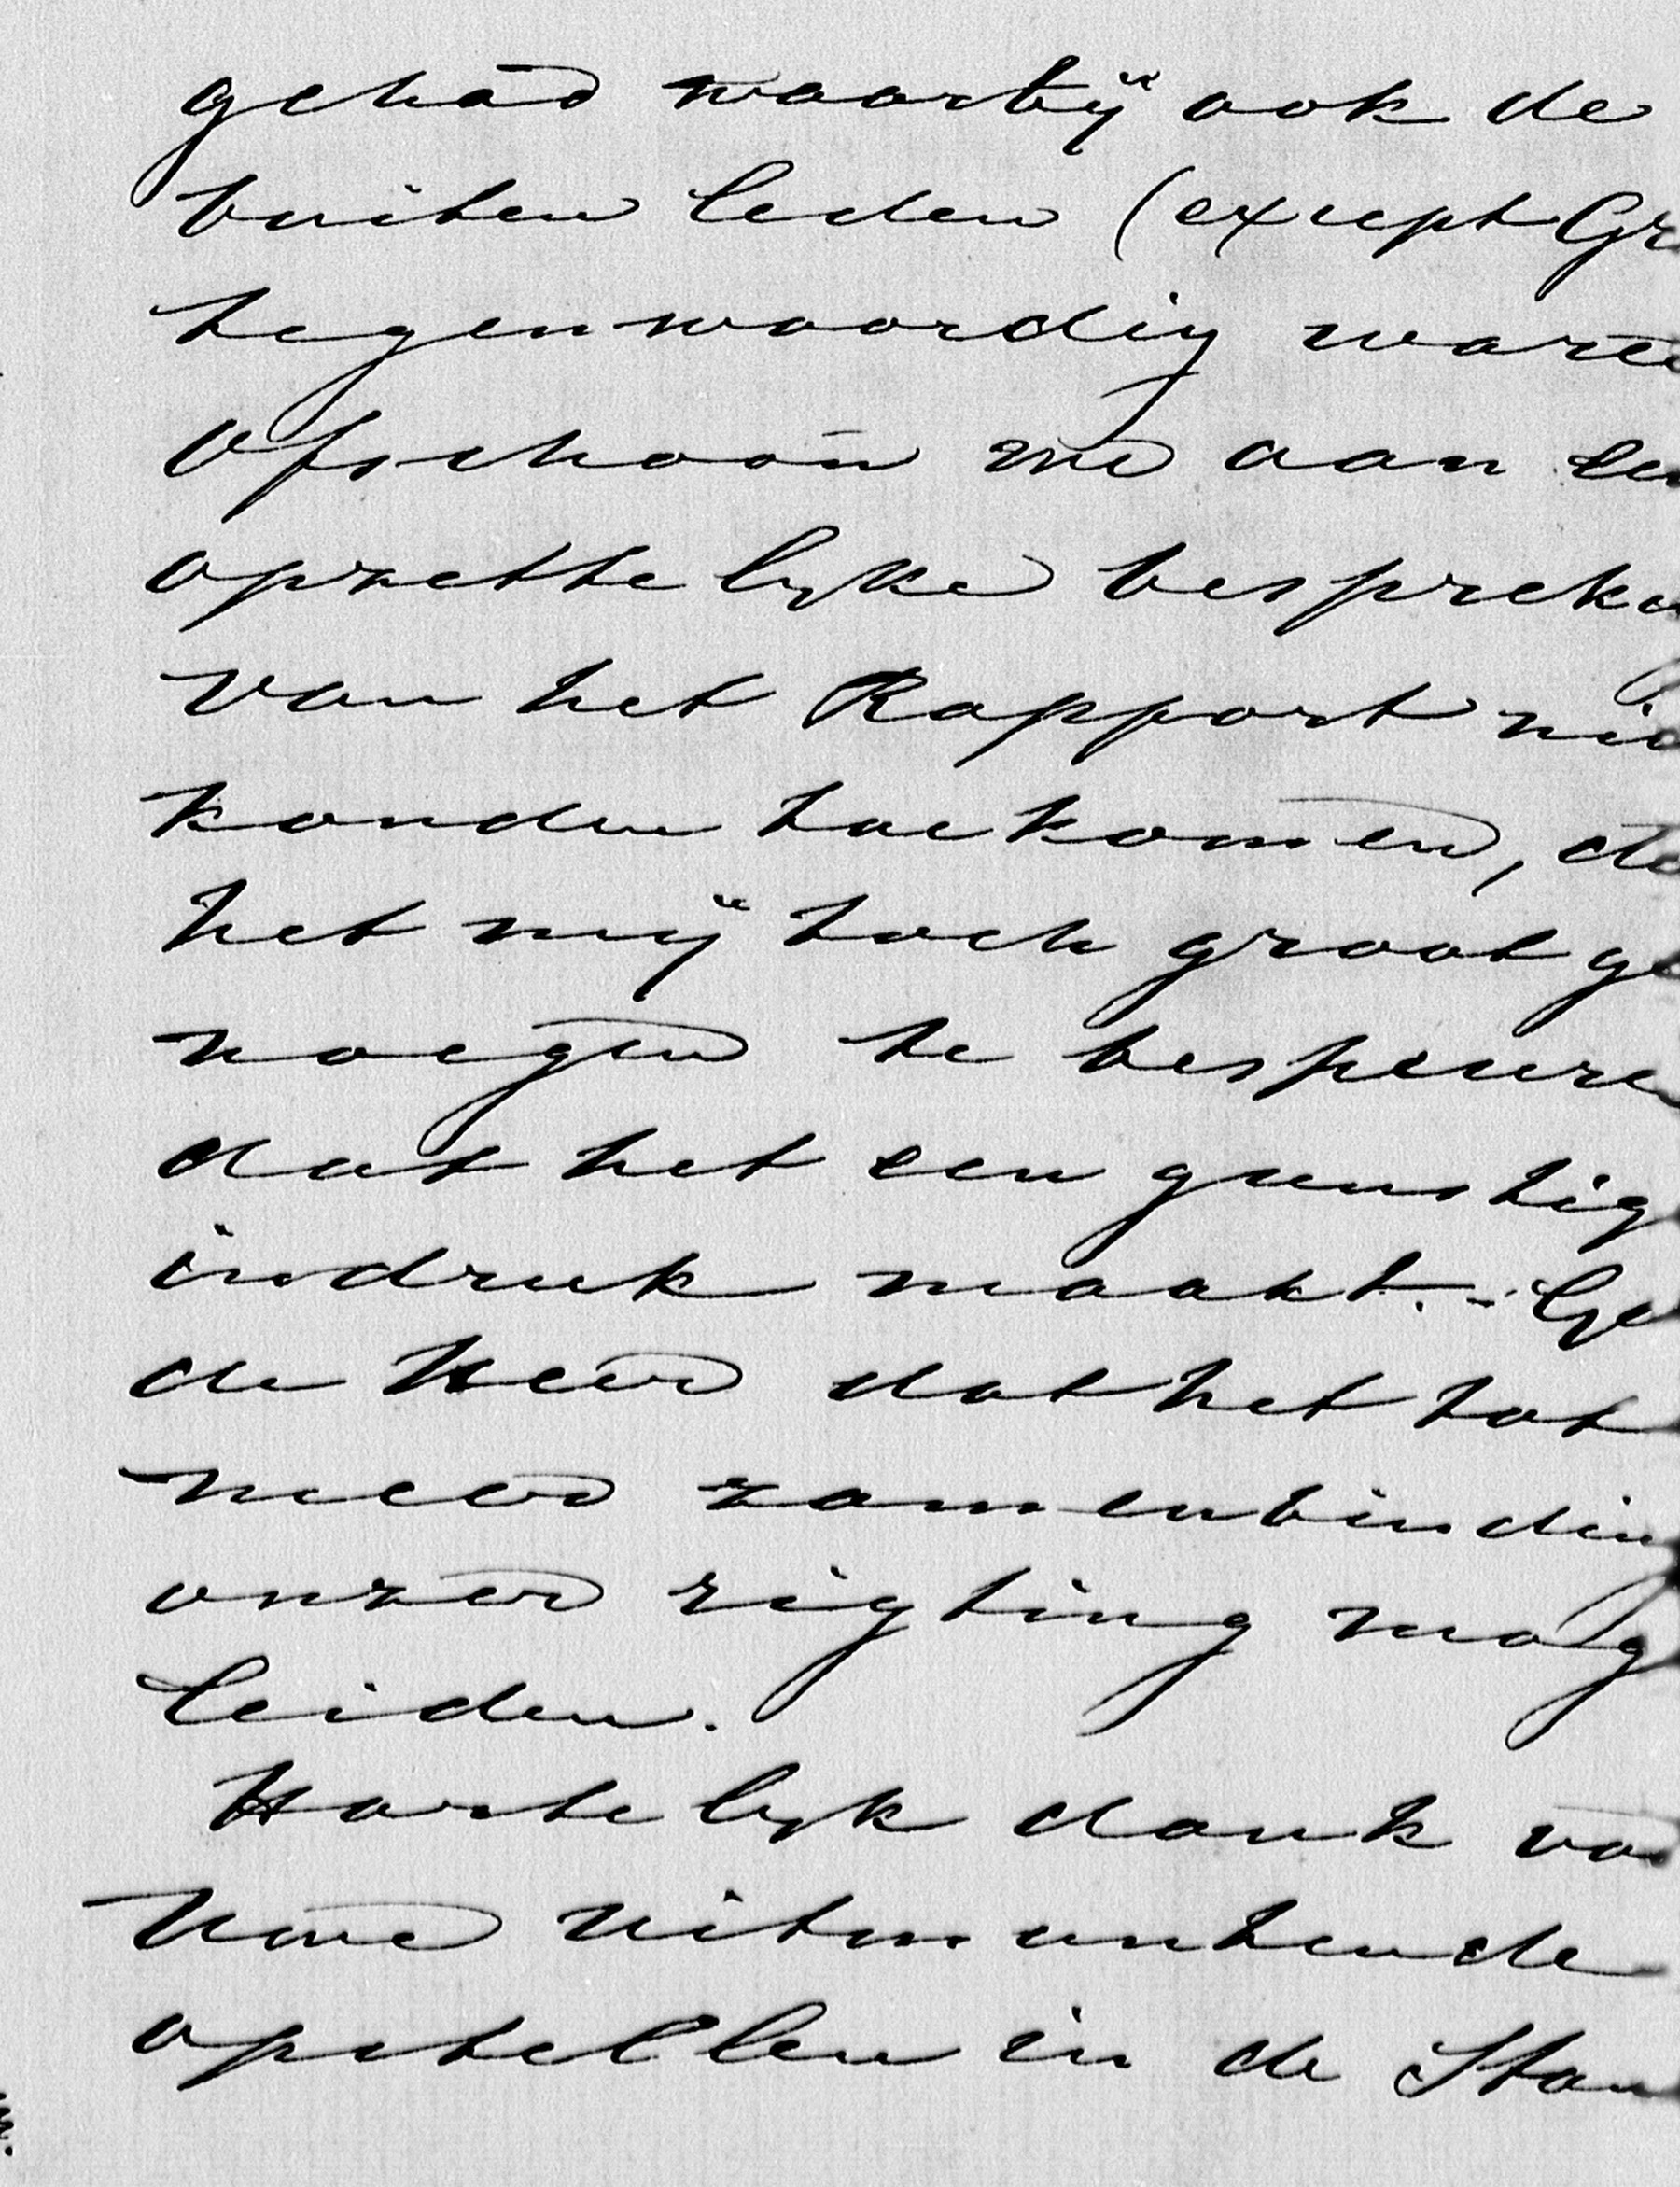 gehad waarbij ook de
buiten leden (except Gr
tegenwoordig ware
Ofschoon we aan
opzettelyke bespreki
van het Rapport
konden toekomen, de
het mij toch groot ge
noegen te bespeure
dat het een gunstig
indruk maakt. - Ge
de Heer dat het tot
meer zamenbindin
onzer rigting mag
leiden.
Hartelyk dank vo
Uwe uitmuntende
opstellen in de Stan